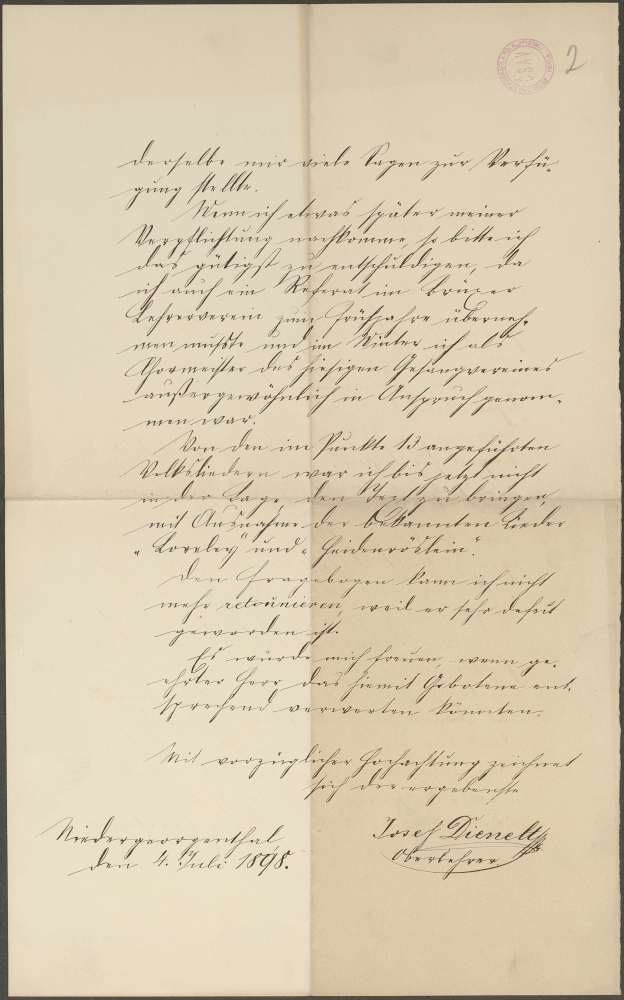 2
derselbe mir viele Sagen zur Verfü-
gung stellte.
Wenn ich etwas später meiner
Verpflichtung nachkomme, so bitte ich
das gütigst zu entschuldigen, da
ich auch ein Referat im Brüxer
Lehrerverein zum Frühjahre überneh-
men mußte und im Winter ich als
Chormeister des hiesigen Gesangvereines
außergewöhnlich in Anspruch genom-
men war.
Von den im Punkte 13 angeführten
Volksliedern war ich bis jetzt nicht
in der Lage, den Text zu bringen,
mit Ausnahme der bekannten Lieder
„Loreley" und „Heidenröslein".
Den Fragebogen kann ich nicht
mehr retounieren, weil er sehr defekt
geworden ist.
Es würde mich freuen, wenn ge-
ehrter Herr das hiemit Gebotene ent-
sprechend verwerten könnten.
Mit vorzüglicher Hochachtung zeichnet
sich der ergebenste
Josef Dienelt
Oberlehrer
Niedergeorgenthal
den 4. Juli 1898.